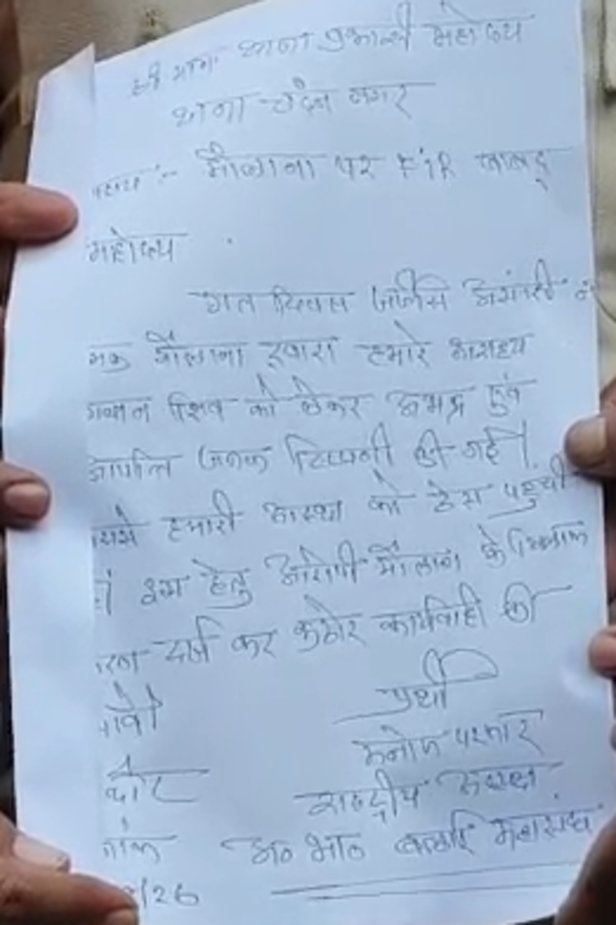 श्री मान थाना प्रभारी महोदय
थाना चंदन नगर
मौलाना पर FIR बाबद्
महोदय
गत दिवस जर्जिस अंसारी
मौलाना द्वारा हमारे आराध्य
शिव को लेकर अभद्र एवं
जनक टिप्पणी की गई।
हमारी आस्था को ठेस पहुची
इस हेतु आरोपी मौलाना के खिलाफ
दर्ज कर कठोर कार्यवाही की
प्रार्थी
मनोज परमार
राष्ट्रीय अध्यक्ष
अ० भा० बलाई महासंघ
/26